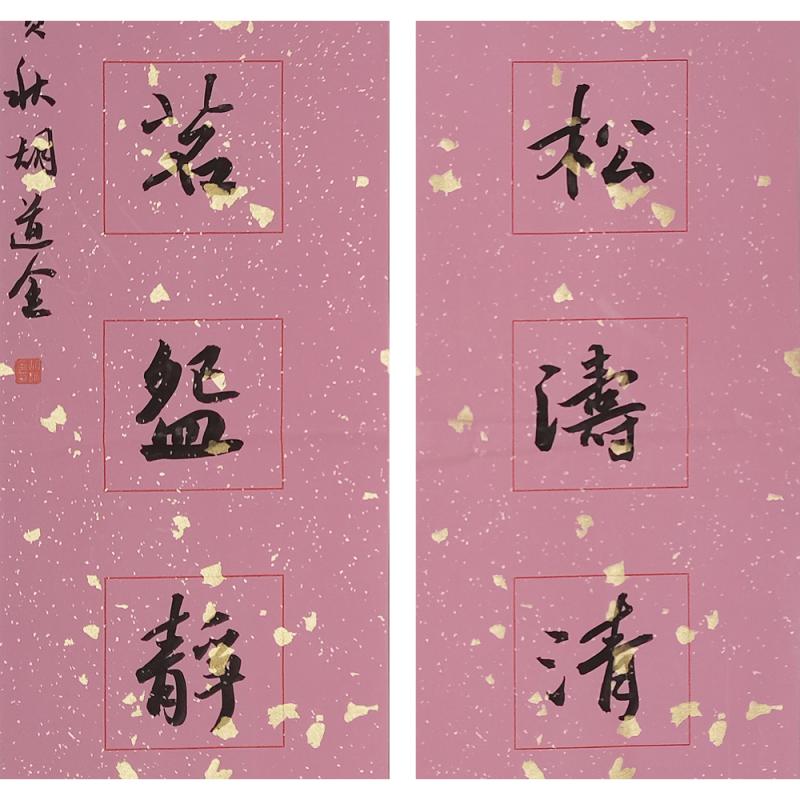 松濤清
茗盌靜
秋胡道全